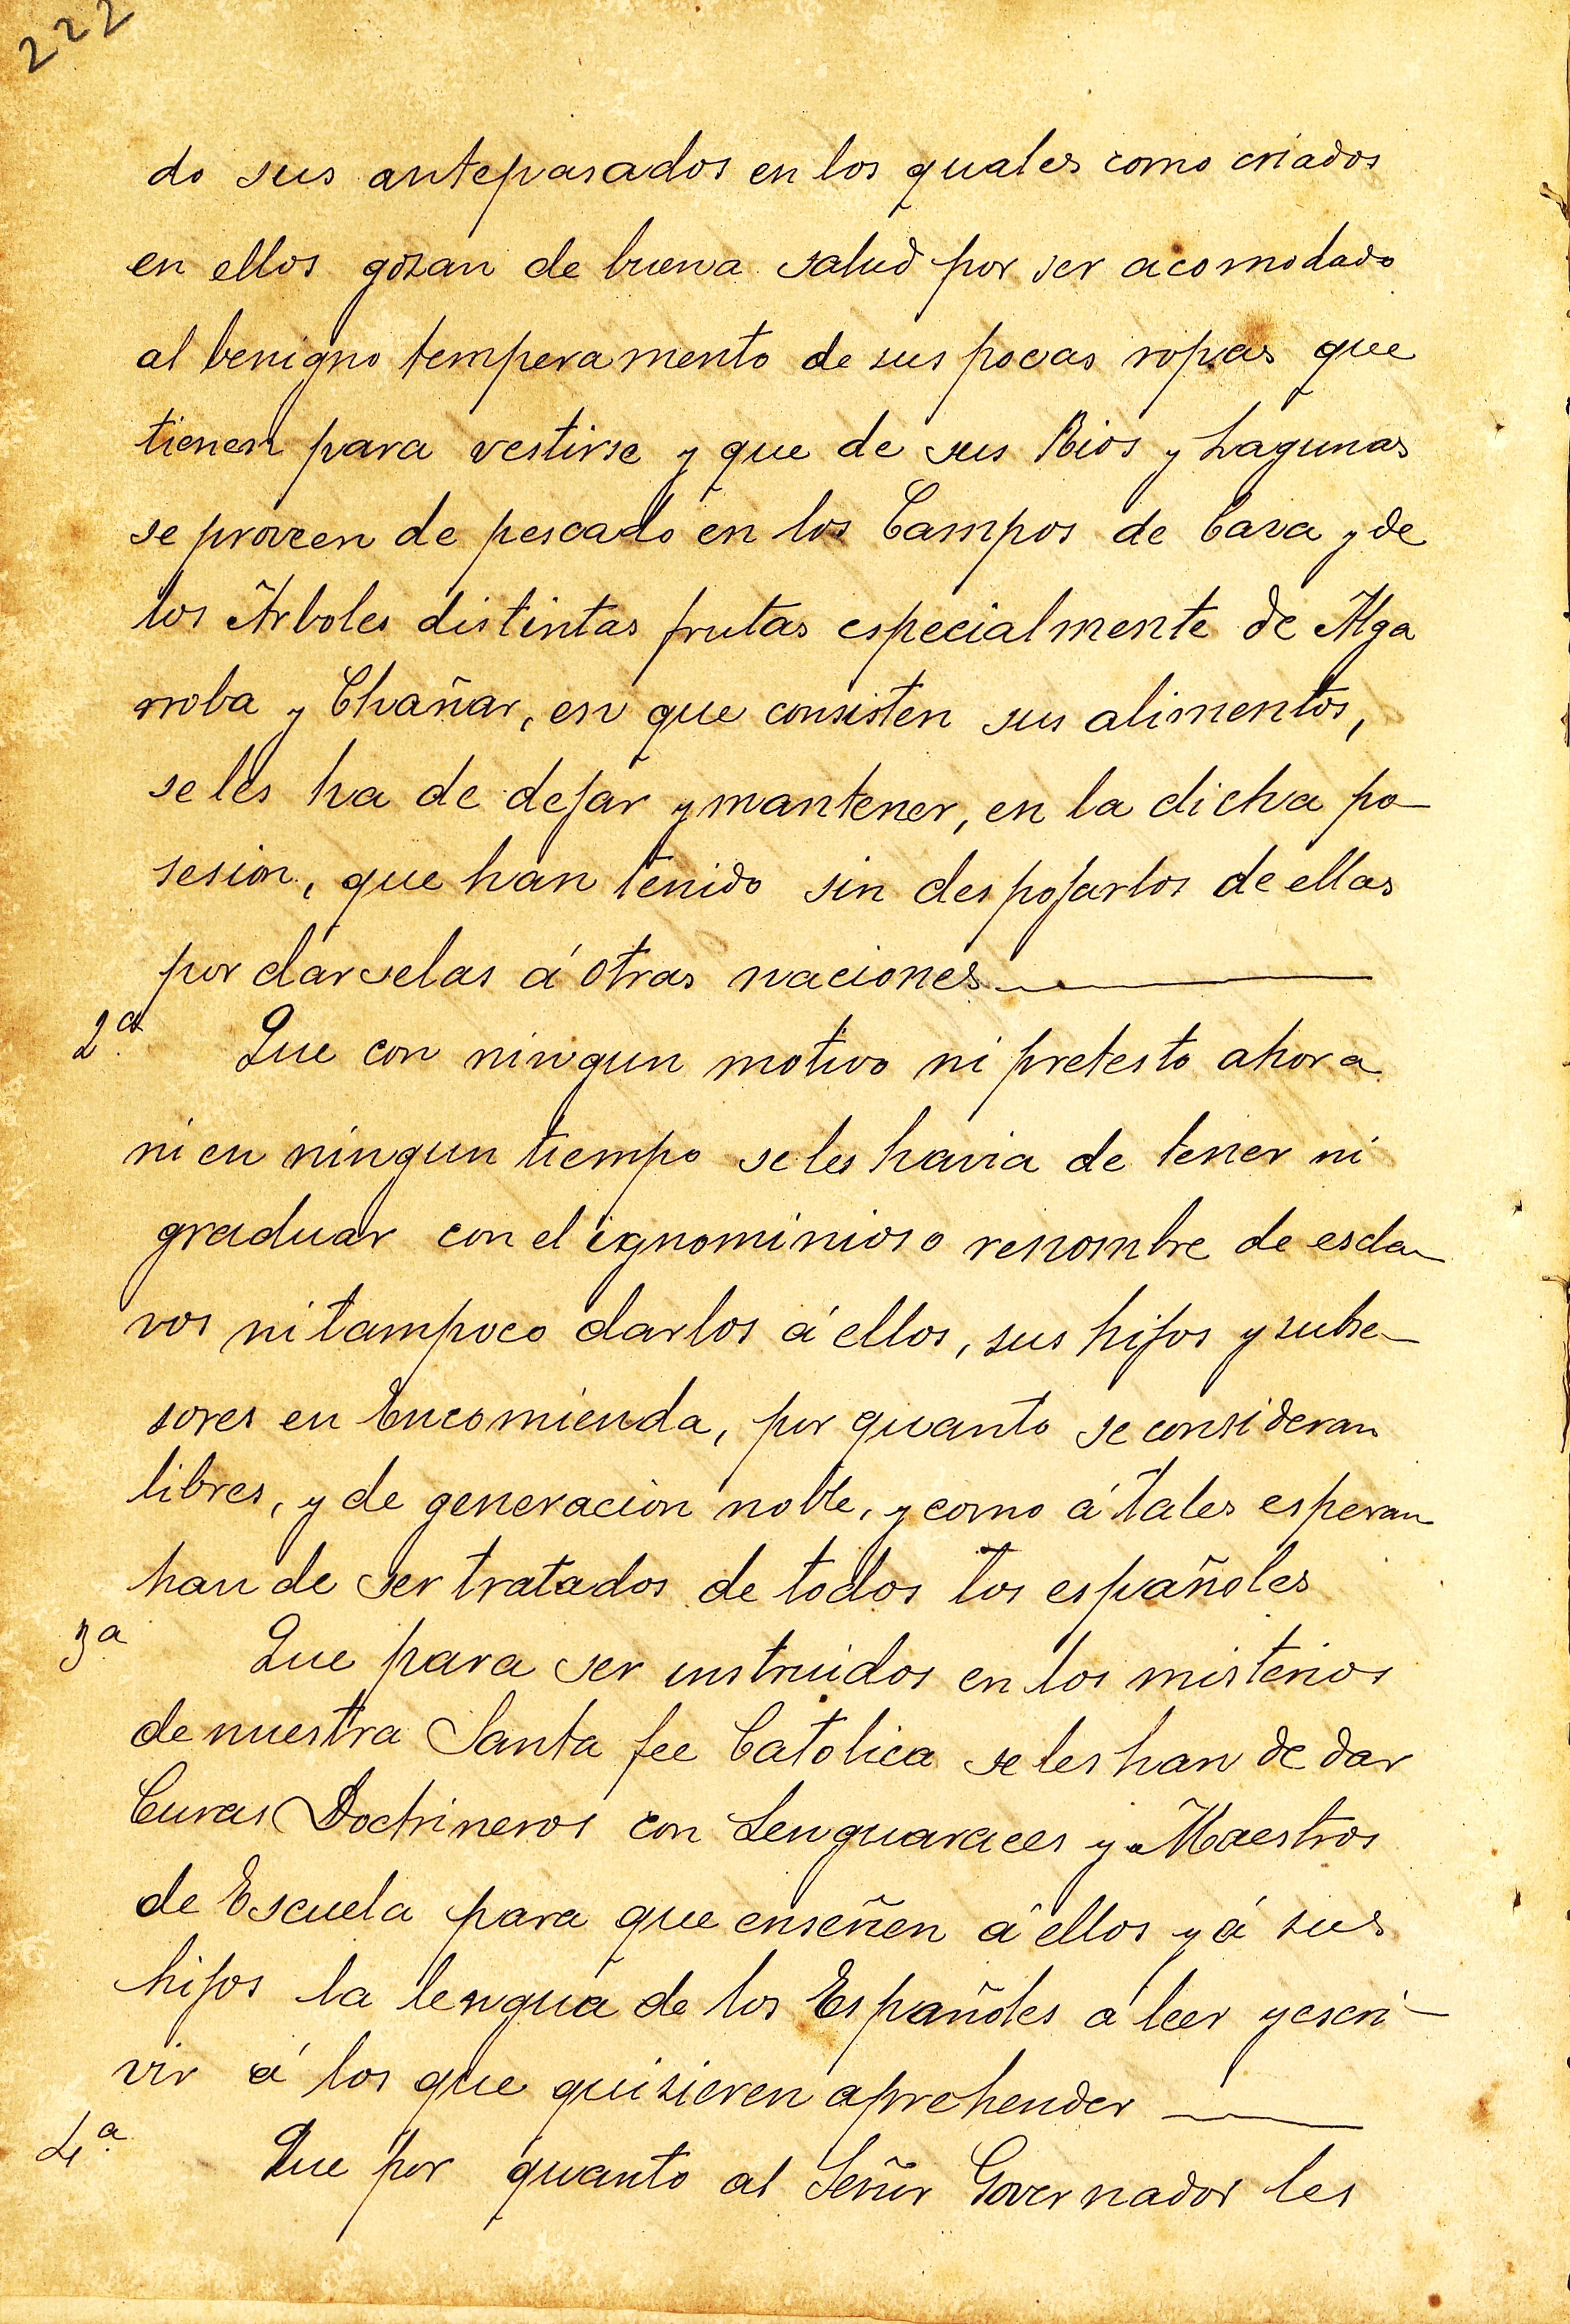 222
do sus antepasados en los quales como criados
en ellos gozan de buena salud por ser acomodado
al benigno temperamento de sus pocas ropas que
tienen para vestirse y que de sus Rios y Lagunas
se proveen de pescado en los Campos de Caza y de
los Arboles distintas frutas especialmente de Alga
rroba y Chañar, en que consisten sus alimentos,
se les ha de dejar y mantener, en la dicha po-
sesion, que han tenido sin despojarlos de ellas
por darselas á otras naciones
2ª Que con ningun motivo ni pretesto ahora
ni en ningun tiempo se les havia de tener ni
graduar con el ignominioso renombre de escla-
vos ni tampoco darlos á ellos, sus hijos y subce-
sores en Encomienda, por quanto se consideran
libres, y de generacion noble, y como á tales esperan
han de ser tratados de todos los españoles
3ª Que para ser instruidos en los misterios
de nuestra Santa fee Catolica se les han de dar
Curas Doctrineros con Lenguaraces y Maestros
de Escuela para que enseñen á ellos y á sus
hijos la lengua de los Españoles á leer y escri-
vir á los que quisieren aprehender
4ª Que por quanto al Señor Governador les